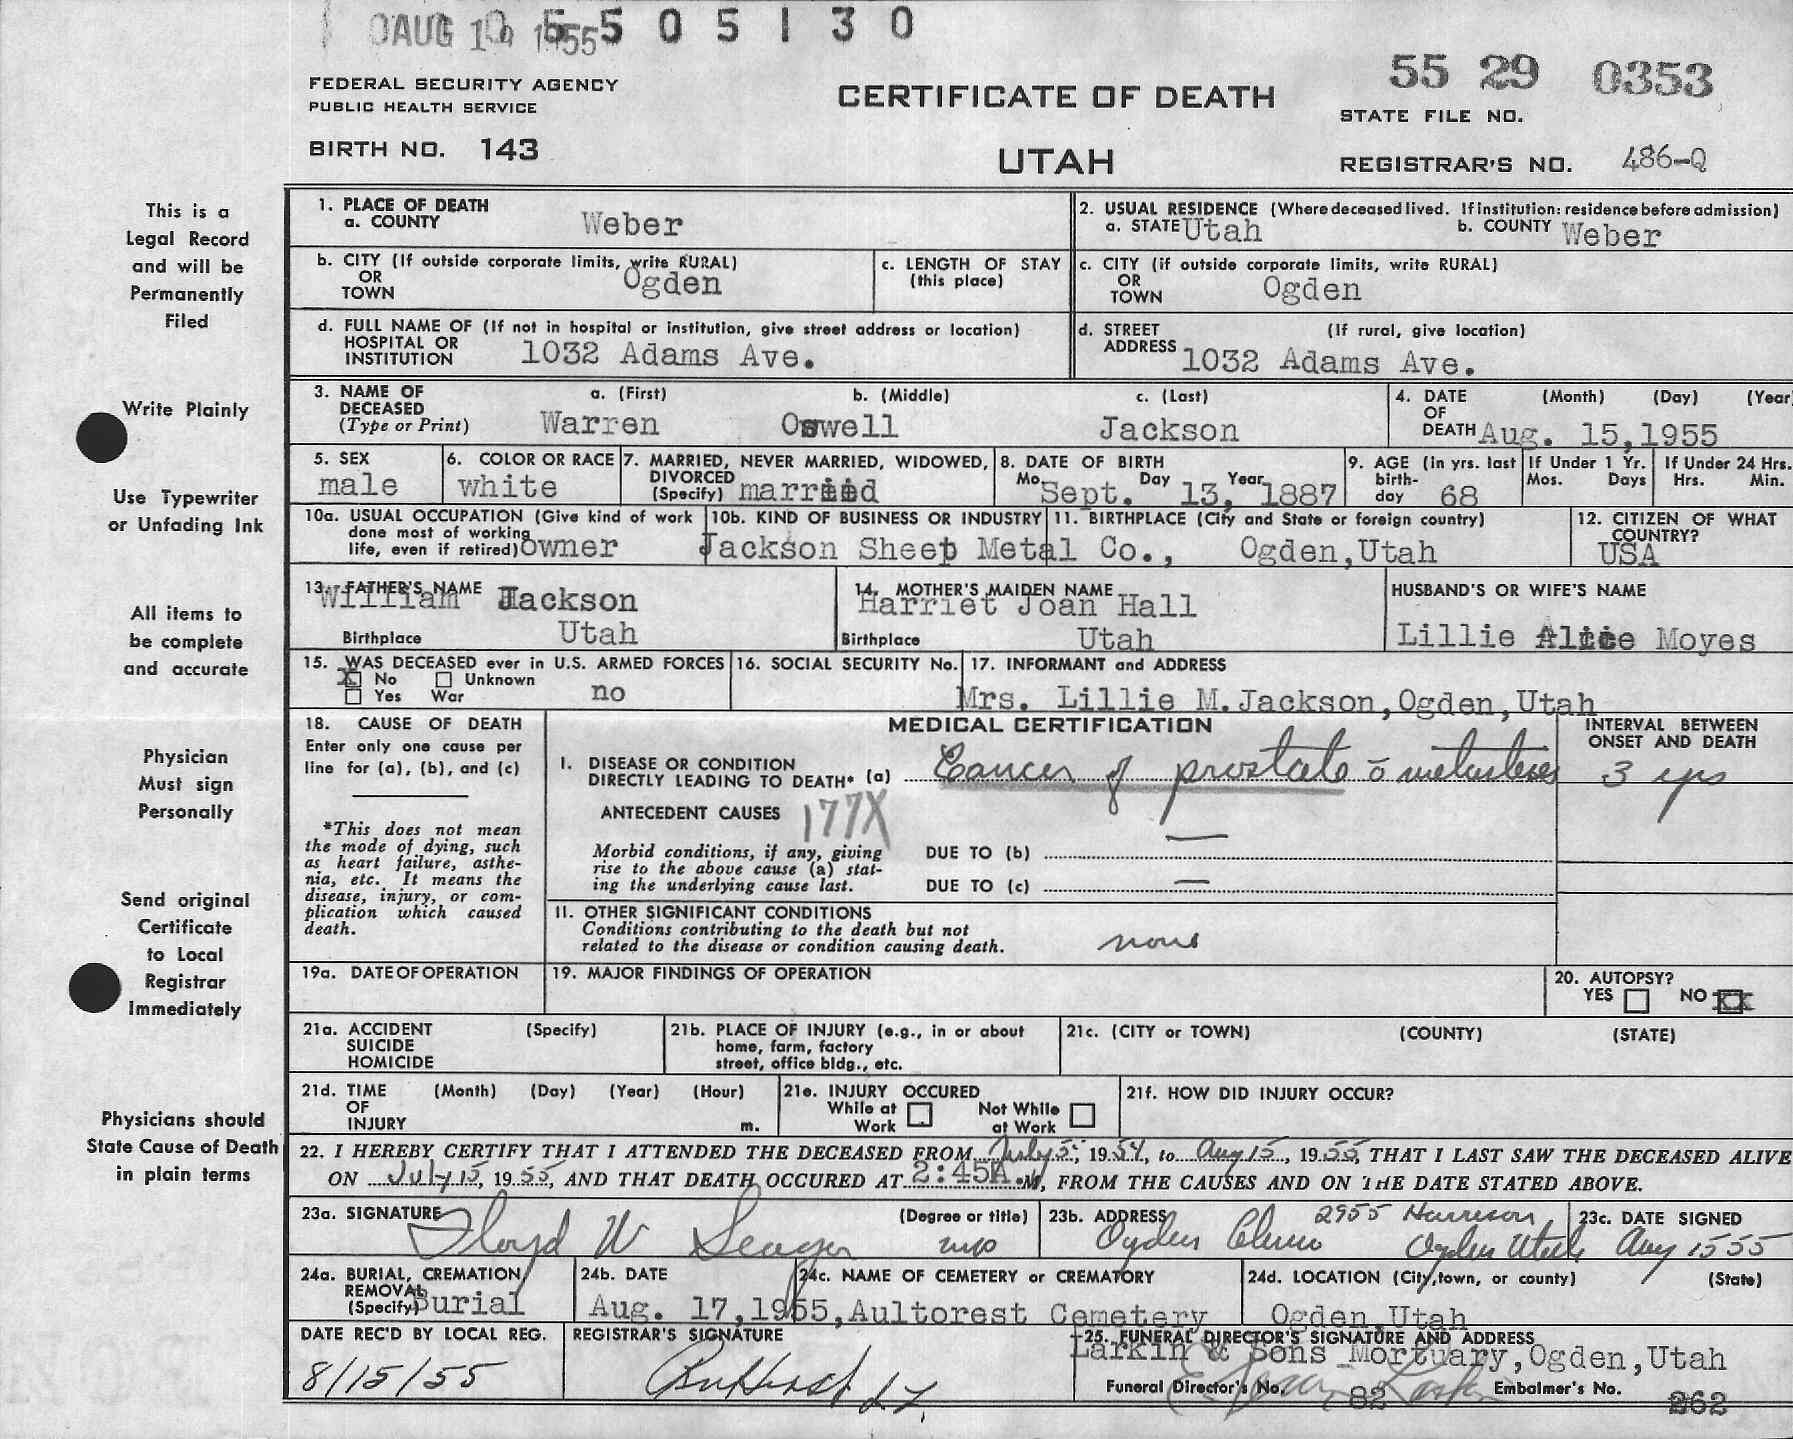 AUG 1 1955 5 5 0 5 1 3 0
FEDERAL SECURITY AGENCY
PUBLIC HEALTH SERVICE
BIRTH NO. 143
CERTIFICATE OF DEATH
UTAH
55 29 0353
STATE FILE NO.
REGISTRAR'S NO. 486-Q
This is a
Legal Record
and will be
Permanently
Filed
Write Plainly
Use Typewriter
or Unfading Ink
All items to
be complete
and accurate
Physician
Must sign
Personally
Send original
Certificate
to Local
Registrar
Immediately
Physicians should
State Cause of Death
in plain terms
1. PLACE OF DEATH
a. COUNTY Weber
2. USUAL RESIDENCE (Where deceased lived. If institution: residence before admission)
a. STATE Utah b. COUNTY Weber
b. CITY (If outside corporate limits, write RURAL)
OR
TOWN Ogden
c. LENGTH OF STAY
(this place)
c. CITY (if outside corporate limits, write RURAL)
OR
TOWN Ogden
d. FULL NAME OF (If not in hospital or institution, give street address or location)
HOSPITAL OR
INSTITUTION 1032 Adams Ave.
d. STREET (If rural, give location)
ADDRESS 1032 Adams Ave.
3. NAME OF a. (First) b. (Middle) c. (Last)
DECEASED
(Type or Print) Warren Oswell Jackson
4. DATE (Month) (Day) (Year
OF
DEATH Aug. 15,1955
5. SEX
male
6. COLOR OR RACE
white
7. MARRIED, NEVER MARRIED, WIDOWED,
DIVORCED
(Specify) married
8. DATE OF BIRTH
Mo. Day Year
Sept. 13, 1887
9. AGE (in yrs. last
birth-
day 68
If Under 1 Yr.
Mos. Days
If Under 24 Hrs.
Hrs. Min.
10a. USUAL OCCUPATION (Give kind of work
done most of working
life, even if retired) owner
10b. KIND OF BUSINESS OR INDUSTRY
Jackson Sheet Metal Co.,
11. BIRTHPLACE (City and State or foreign country)
Ogden,Utah
12. CITIZEN OF WHAT
COUNTRY?
USA
13. FATHER'S NAME
William Jackson
Birthplace Utah
14. MOTHER'S MAIDEN NAME
Harriet Joan Hall
Birthplace Utah
HUSBAND'S OR WIFE'S NAME
Lillie Alice Moyes
15. WAS DECEASED ever in U.S. ARMED FORCES
X No Unknown
Yes War no
16. SOCIAL SECURITY No.
17. INFORMANT and ADDRESS
Mrs. Lillie M.Jackson,Ogden,Utah
18. CAUSE OF DEATH
Enter only one cause per
line for (a), (b), and (c)
*This does not mean
the mode of dying, such
as heart failure, asthe-
nia, etc. It means the
disease, injury, or com-
plication which caused
death.
MEDICAL CERTIFICATION
INTERVAL BETWEEN
ONSET AND DEATH
I. DISEASE OR CONDITION
DIRECTLY LEADING TO DEATH* (a) Cancer of prostate c̄ metastases 3 yrs
ANTECEDENT CAUSES 177X
Morbid conditions, if any, giving
rise to the above cause (a) stat-
ing the underlying cause last.
DUE TO (b) —
DUE TO (c) —
II. OTHER SIGNIFICANT CONDITIONS
Conditions contributing to the death but not
related to the disease or condition causing death. none
19a. DATE OF OPERATION
19. MAJOR FINDINGS OF OPERATION
20. AUTOPSY?
YES NO XX
21a. ACCIDENT (Specify)
SUICIDE
HOMICIDE
21b. PLACE OF INJURY (e.g., in or about
home, farm, factory
street, office bldg., etc.
21c. (CITY or TOWN) (COUNTY) (STATE)
21d. TIME (Month) (Day) (Year) (Hour)
OF
INJURY m.
21e. INJURY OCCURED
While at Not While
Work at Work
21f. HOW DID INJURY OCCUR?
22. I HEREBY CERTIFY THAT I ATTENDED THE DECEASED FROM July 5, 1954, to Aug 15, 1955, THAT I LAST SAW THE DECEASED ALIVE
ON July 15, 1955, AND THAT DEATH OCCURED AT 2:45A.M, FROM THE CAUSES AND ON THE DATE STATED ABOVE.
23a. SIGNATURE (Degree or title)
Floyd W Seager MD
23b. ADDRESS 2955 Harrison
Ogden Clinic Ogden Utah
23c. DATE SIGNED
Aug 15 55
24a. BURIAL, CREMATION,
REMOVAL
(Specify) Burial
24b. DATE
Aug. 17,1955,
24c. NAME OF CEMETERY or CREMATORY
Aultorest Cemetery
24d. LOCATION (City, town, or county) (State)
Ogden,Utah
DATE REC'D BY LOCAL REG.
8/15/55
REGISTRAR'S SIGNATURE
25. FUNERAL DIRECTOR'S SIGNATURE AND ADDRESS
Larkin & Sons Mortuary,Ogden,Utah
Funeral Director's No. 82 Embalmer's No. 262